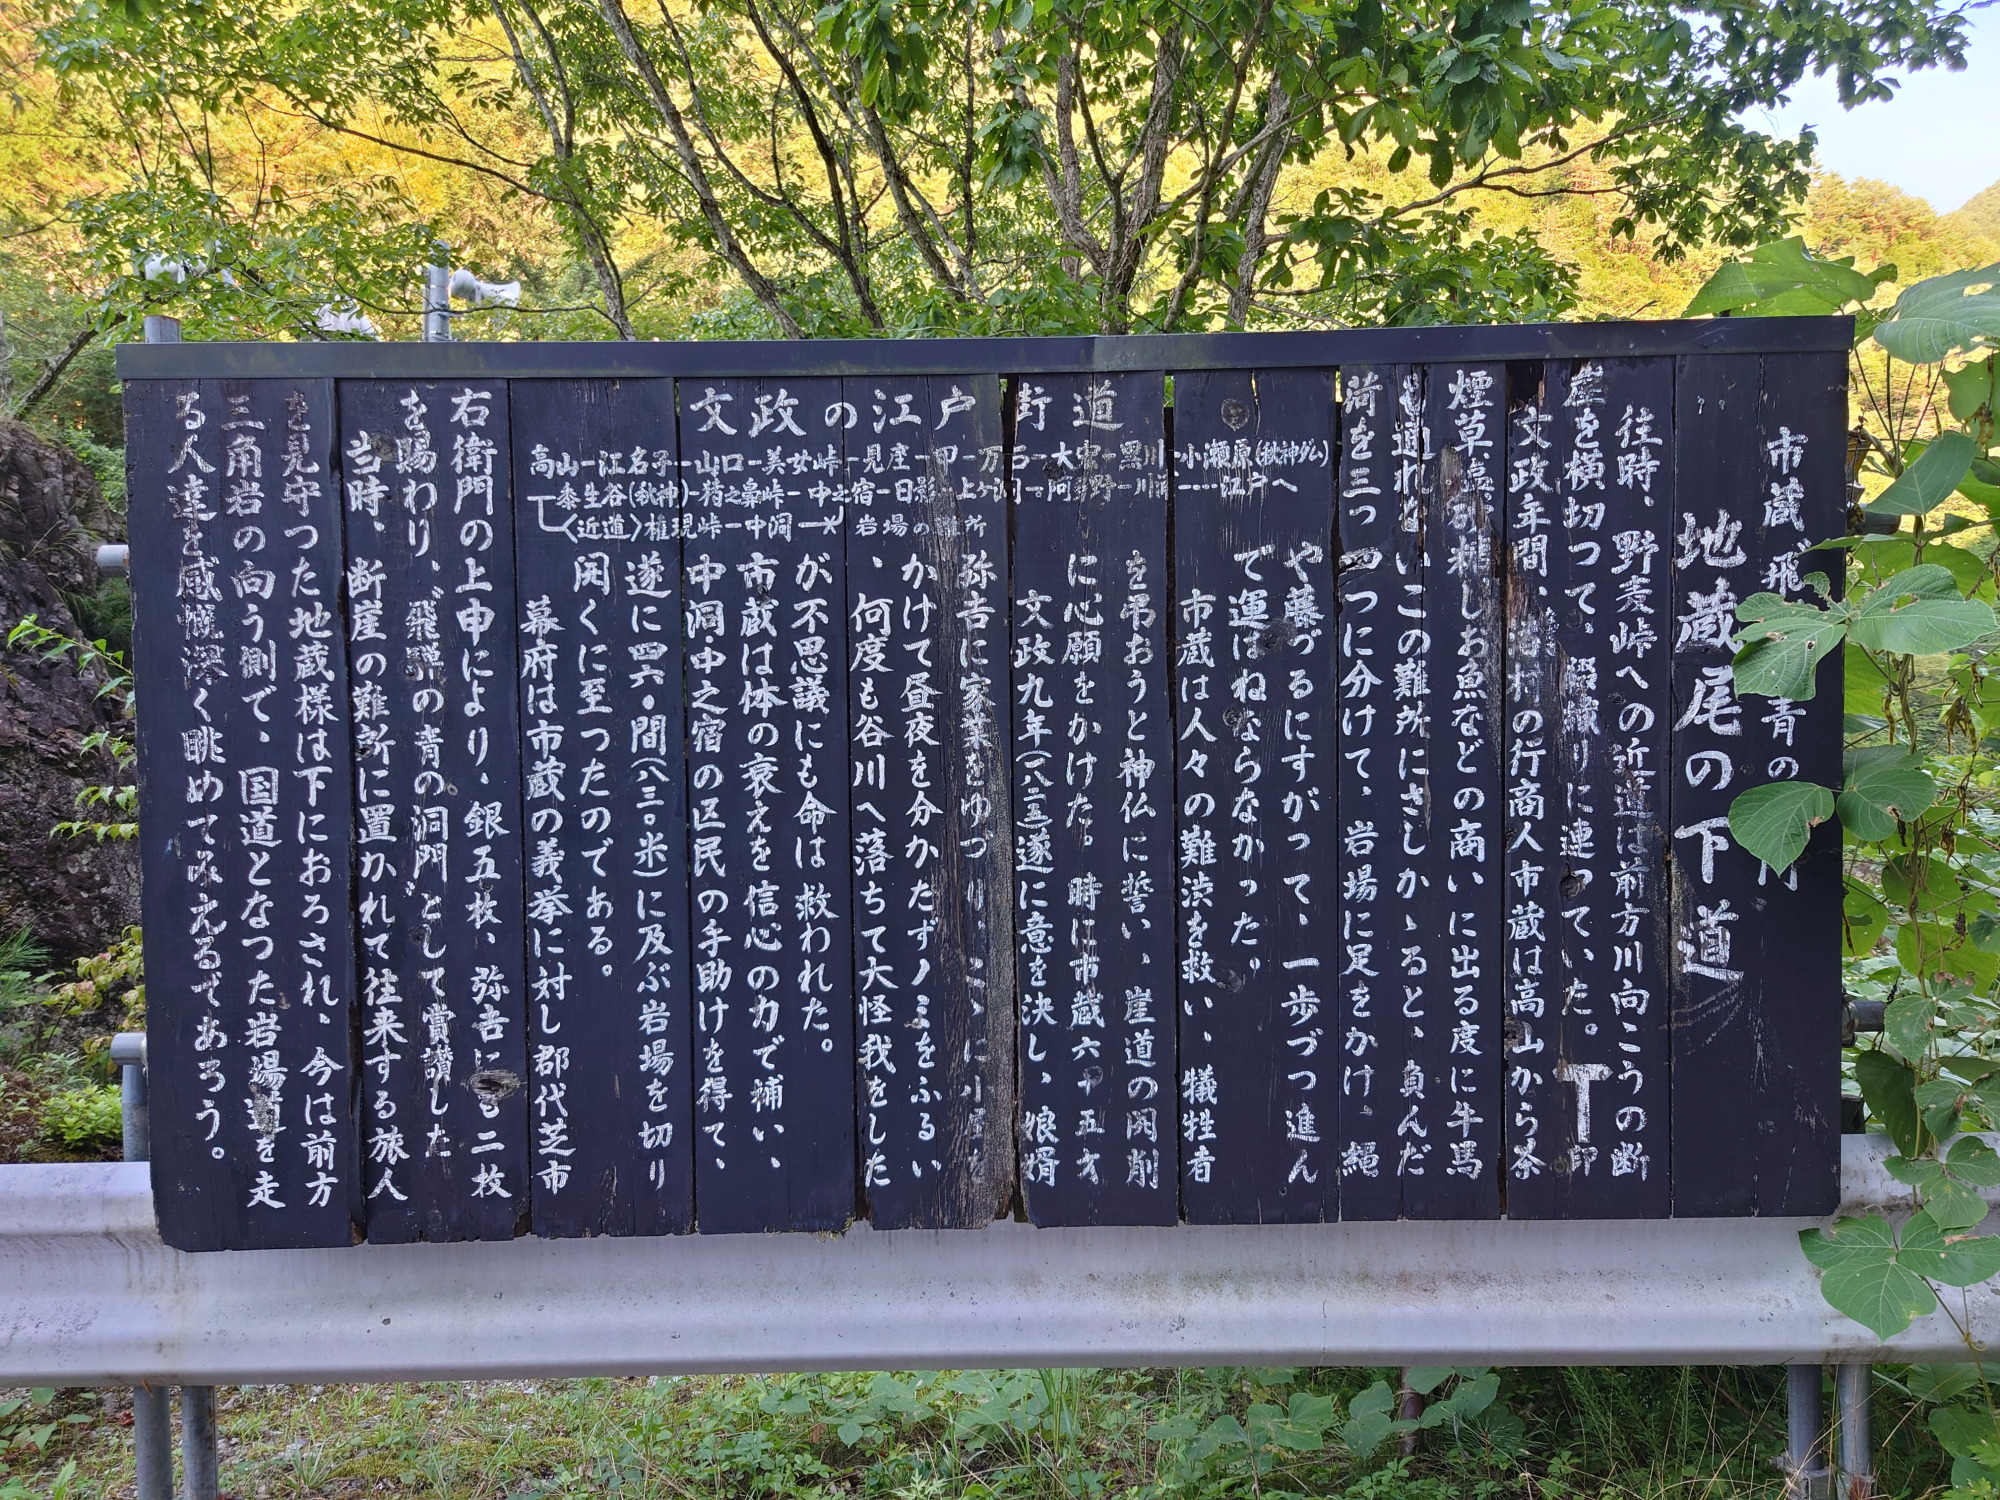 市蔵〝飛
青の
門
地蔵尾の下道
往時、野麦峠への近道は前方川向こうの断
崖を横切つて、綴織りに連っていた。T印
文政年間、
村の行商人市蔵は高山から茶
煙草、塩
糀しお魚などの商いに出る度に牛馬
も通れないこの難所にさしかゝると、負んだ
荷を三つ四つに分けて、岩場に足をかけ、縄
や藤づるにすがって、一歩づつ進ん
で運はねならなかった。
市蔵は人々の難渋を救い、犠牲者
を弔おうと神仏に誓い、崖道の開削
に心願をかけた。時に市蔵六十五才
文政九年(一八二五)遂に意を決し、娘婿
弥吉に家業をゆづり、こゝに小屋を
かけて昼夜を分かたずノミをふるい
、何度も谷川へ落ちて大怪我をした
が不思議にも命は救われた。
市蔵は体の衰えを信心の力で補い、
中洞・中之宿の区民の手助けを得て、
遂に四六〇間(八三〇米)に及ぶ岩場を切り
開くに至つたのである。
幕府は市蔵の義挙に対し郡代芝市
右衛門の上申により、銀五枚、弥吉にも二枚
を賜わり、〝飛騨の青の洞門〟として賞讃した
当時、断崖の難所に置かれて往来する旅人
を見守つた地蔵様は下におろされ、今は前方
三角岩の向う側で、国道となつた岩場道を走
る人達を感慨深く眺めてみえるであろう。
文政の江戸街道
高山-江名子-山口-美女峠-見座-甲-万石-大
-黒川-小瀬原(秋神ダム)
黍生谷(秋神)-猪之鼻峠-中之宿-日影-上ヶ洞-阿多野-川浦-……江戸へ
〈近道〉権現峠-中洞-×岩場の難所